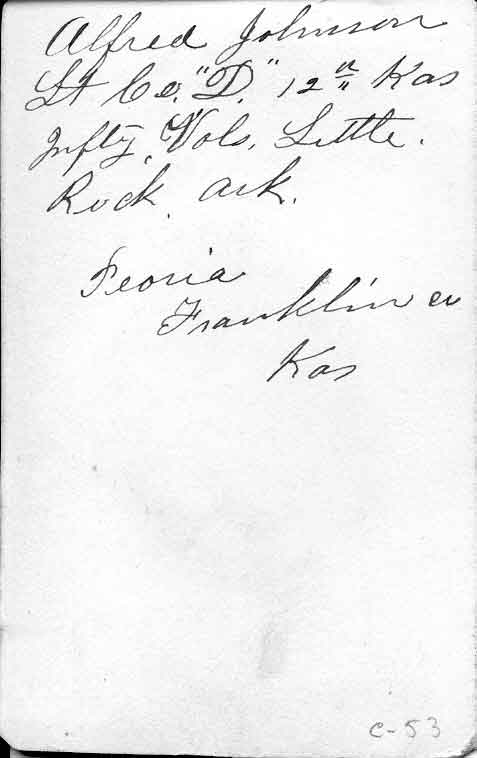 Alfred Johnson
Lt Co. "D." 12th Kas
Infty, Vols, Little.
Rock, Ark.
Peoria
Franklin co
Kas
C-53